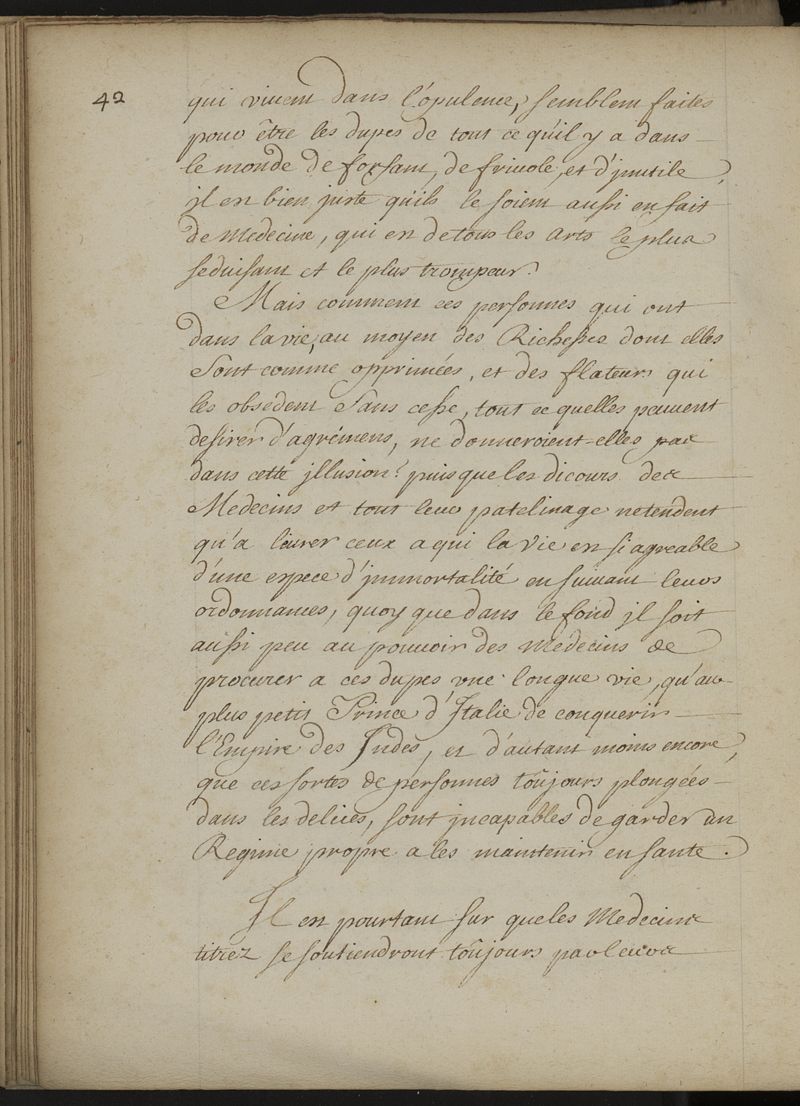 42
qui vivent dans l'opulence, semblent faites
pour être les dupes de tout ce qu'il y a dans
le monde de forfant, de frivole, et d'jnutile,
jl est bien juste qu'ils le soient aussi en fait
de Medecine, qui est de tous les arts le plus
seduisant et le plus trompeur.
Mais comment ces personnes qui ont
dans la vie, au moyen des Richesses dont elles
sont comme opprimées, et des flateurs qui
les obsedent sans cesse, tout ce quelles peuvent
desirer d'agrémens, ne donneroient-elles pas
dans cette jllusion? puisque les dicours des
Medecins et tout leur patelinage ne tendent
qu'a leurer ceux a qui la vie est si agreable
d'une espece d'jmmortalité en suivant leurs
ordonnances, quoy que dans le fond jl soit
aussi peu au pouvoir des Médecins de
procurer a ces dupes une longue vie, qu'au
plus petit Prince d'Italie de conquerir
l'Empire des Indes, et d'autant moins encore,
que ces sortes de personnes toûjours plongées
dans les delices, sont jncapables de garder un
Regime propre a les maintenir en santé.
Il est pourtant sur que les Medecins
titrez se soutiendront toûjours par leurs